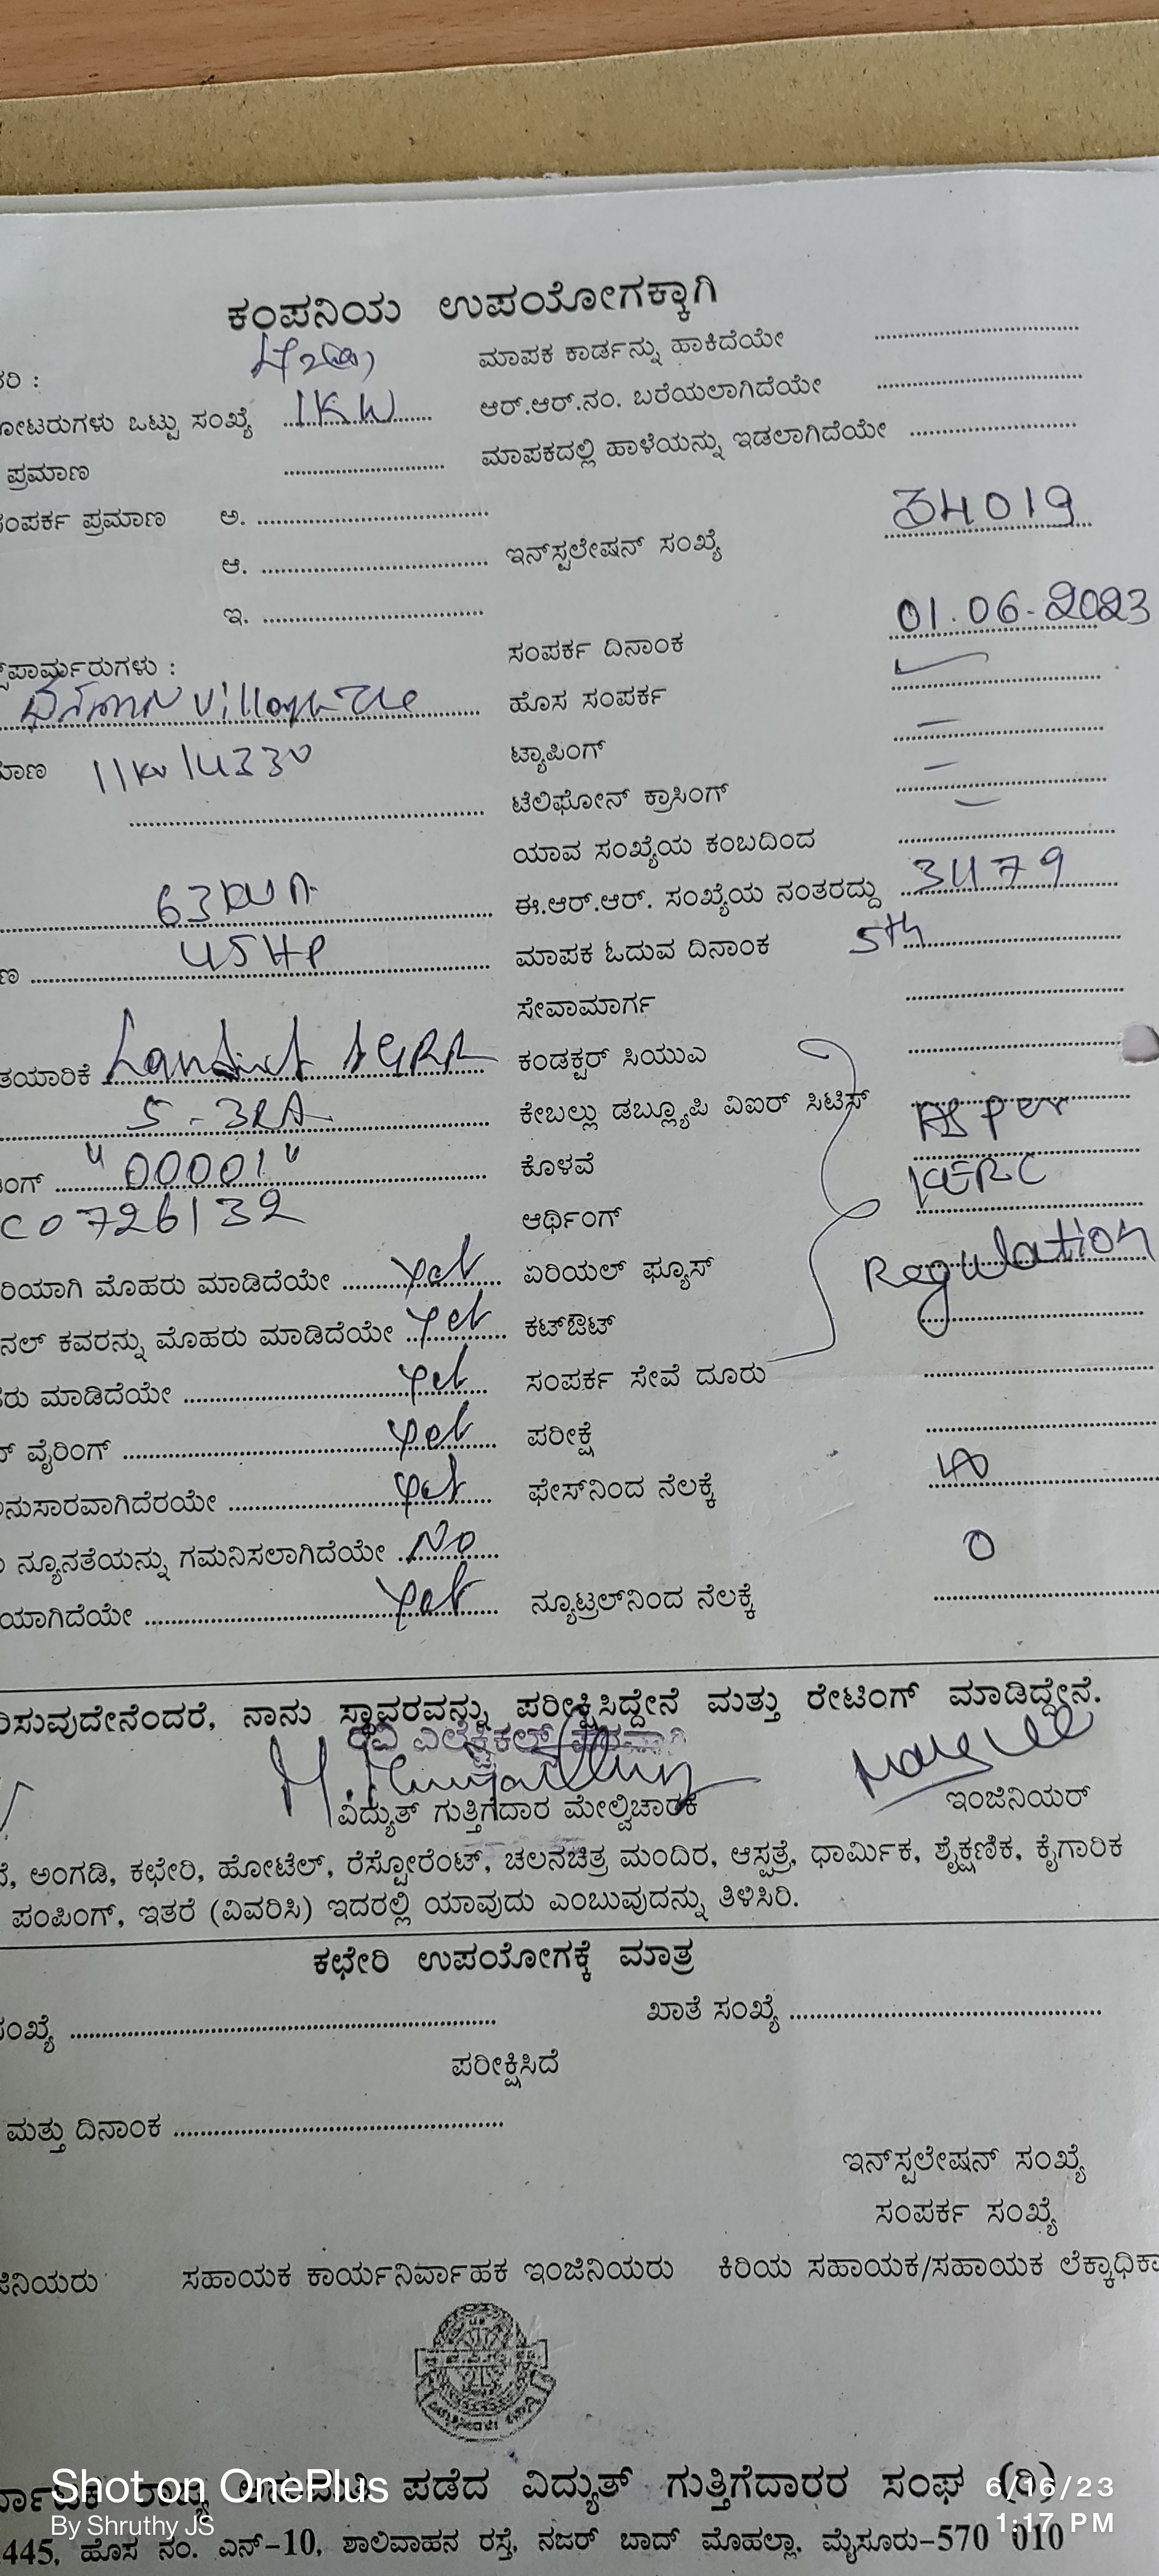 ಕಂಪನಿಯ ಉಪಯೋಗಕ್ಕಾಗಿ
ಮಾಪಕ ಕಾರ್ಡನ್ನು ಹಾಕಿದೆಯೇ
ರಿ :
ೋಟರುಗಳು ಒಟ್ಟು ಸಂಖ್ಯೆ 1KW ಆರ್.ಆರ್.ನಂ. ಬರೆಯಲಾಗಿದೆಯೇ
ಪ್ರಮಾಣ ಮಾಪಕದಲ್ಲಿ ಹಾಳೆಯನ್ನು ಇಡಲಾಗಿದೆಯೇ
ಸಂಪರ್ಕ ಪ್ರಮಾಣ ಅ.
ಆ. ಇನ್‌ಸ್ಟಲೇಷನ್ ಸಂಖ್ಯೆ 34019
ಇ.
ಸಂಪರ್ಕ ದಿನಾಂಕ 01.06-2023
್ಸ್‌ಫಾರ್ಮರುಗಳು :
ಹೊಸ ಸಂಪರ್ಕ
village
ಮಾಣ 11kv ಟ್ಯಾಪಿಂಗ್ –
ಟೆಲಿಫೋನ್ ಕ್ರಾಸಿಂಗ್ –
ಯಾವ ಸಂಖ್ಯೆಯ ಕಂಬದಿಂದ –
63KVA ಈ.ಆರ್.ಆರ್. ಸಂಖ್ಯೆಯ ನಂತರದ್ದು 3479
ಣ 45HP ಮಾಪಕ ಓದುವ ದಿನಾಂಕ 5th
ಸೇವಾಮಾರ್ಗ
ತಯಾರಿಕೆ ಕಂಡಕ್ಟರ್ ಸಿಯುಎ
ಕೇಬಲ್ಲು ಡಬ್ಲ್ಯೂಪಿ ವಿಐಆರ್ ಸಿಟಿಸ್ As per
ಂಗ್ "00001" ಕೊಳವೆ KERC
C0726132 ಆರ್ಥಿಂಗ್
ರಿಯಾಗಿ ಮೊಹರು ಮಾಡಿದೆಯೇ yes ಏರಿಯಲ್ ಫ್ಯೂಸ್ Regulation
ನಲ್ ಕವರನ್ನು ಮೊಹರು ಮಾಡಿದೆಯೇ yes ಕಟ್ಔಟ್
ರು ಮಾಡಿದೆಯೇ yes ಸಂಪರ್ಕ ಸೇವೆ ದೂರು
ವೈರಿಂಗ್ yes ಪರೀಕ್ಷೆ
ನುಸಾರವಾಗಿದೆರಯೇ yes ಫೇಸ್‌ನಿಂದ ನೆಲಕ್ಕೆ
ನ್ಯೂನತೆಯನ್ನು ಗಮನಿಸಲಾಗಿದೆಯೇ No
ಯಾಗಿದೆಯೇ yes ನ್ಯೂಟ್ರಲ್‌ನಿಂದ ನೆಲಕ್ಕೆ 0
ರಿಸುವುದೇನೆಂದರೆ, ನಾನು ಸ್ಥಾವರವನ್ನು ಪರೀಕ್ಷಿಸಿದ್ದೇನೆ ಮತ್ತು ರೇಟಿಂಗ್ ಮಾಡಿದ್ದೇನೆ.
ವಿದ್ಯುತ್ ಗುತ್ತಿಗೆದಾರ ಮೇಲ್ವಿಚಾರಕ ಇಂಜಿನಿಯರ್
ಅಂಗಡಿ, ಕಛೇರಿ, ಹೋಟೆಲ್, ರೆಸ್ಟೋರೆಂಟ್, ಚಲನಚಿತ್ರ ಮಂದಿರ, ಆಸ್ಪತ್ರೆ, ಧಾರ್ಮಿಕ, ಶೈಕ್ಷಣಿಕ, ಕೈಗಾರಿಕ
ಪಂಪಿಂಗ್, ಇತರೆ (ವಿವರಿಸಿ) ಇದರಲ್ಲಿ ಯಾವುದು ಎಂಬುವುದನ್ನು ತಿಳಿಸಿರಿ.
ಕಛೇರಿ ಉಪಯೋಗಕ್ಕೆ ಮಾತ್ರ
ಸಂಖ್ಯೆ ಖಾತೆ ಸಂಖ್ಯೆ
ಪರೀಕ್ಷಿಸಿದೆ
ಮತ್ತು ದಿನಾಂಕ
ಇನ್‌ಸ್ಟಲೇಷನ್ ಸಂಖ್ಯೆ
ಸಂಪರ್ಕ ಸಂಖ್ಯೆ
ಜಿನಿಯರು ಸಹಾಯಕ ಕಾರ್ಯನಿರ್ವಾಹಕ ಇಂಜಿನಿಯರು ಕಿರಿಯ ಸಹಾಯಕ/ಸಹಾಯಕ ಲೆಕ್ಕಾಧಿಕಾ
ಪಡೆದ ವಿದ್ಯುತ್ ಗುತ್ತಿಗೆದಾರರ ಸಂಘ (ರಿ)
445, ಹೊಸ ನಂ. ಎನ್-10, ಶಾಲಿವಾಹನ ರಸ್ತೆ, ನಜರ್ ಬಾದ್ ಮೊಹಲ್ಲಾ, ಮೈಸೂರು-570 010
Shot on OnePlus
By Shruthy JS
6/16/23
1:17 PM